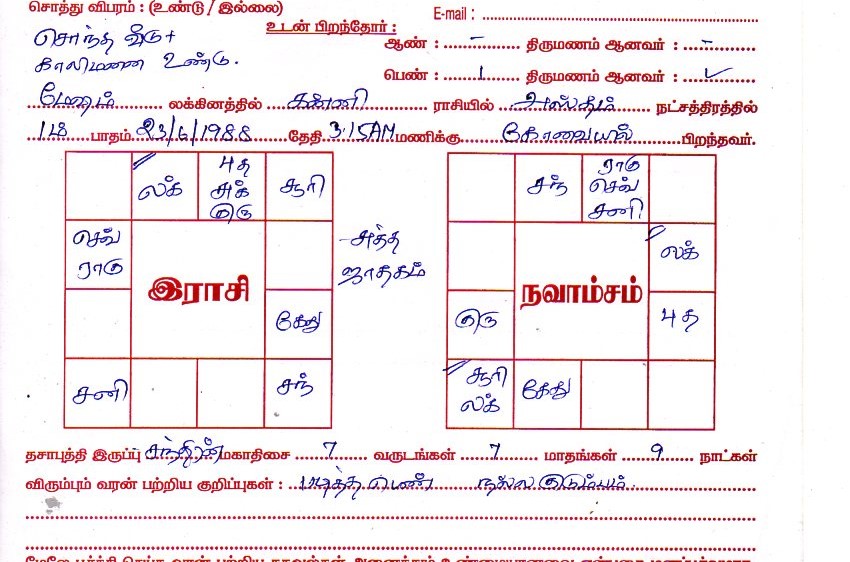 சொத்து விபரம் : (உண்டு / இல்லை)
E-mail :
சொந்த வீடு +
காலிமனை உண்டு.
உடன் பிறந்தோர் :
ஆண் : – திருமணம் ஆனவர் : –
பெண் : 1 திருமணம் ஆனவர் : ✓
மேஷம் லக்கினத்தில் கன்னி ராசியில் அஸ்தம் நட்சத்திரத்தில்
1ம் பாதம் 23/6/1988 தேதி 3.15AM மணிக்கு கோவையில் பிறந்தவர்.
லக்
புத
சுக்
குரு
சூரி
செவ்
ராகு
கேது
சனி
சந்
இராசி
சுத்த
ஜாதகம்
சந்
ராகு
செவ்
சனி
லக்
குரு
புத
சூரி
லக்
கேது
நவாம்சம்
தசாபுத்தி இருப்பு சந்திரன் மகாதிசை 7 வருடங்கள் 7 மாதங்கள் 9 நாட்கள்
விரும்பும் வரன் பற்றிய குறிப்புகள் : படித்த பெண் நல்ல குடும்பம்.